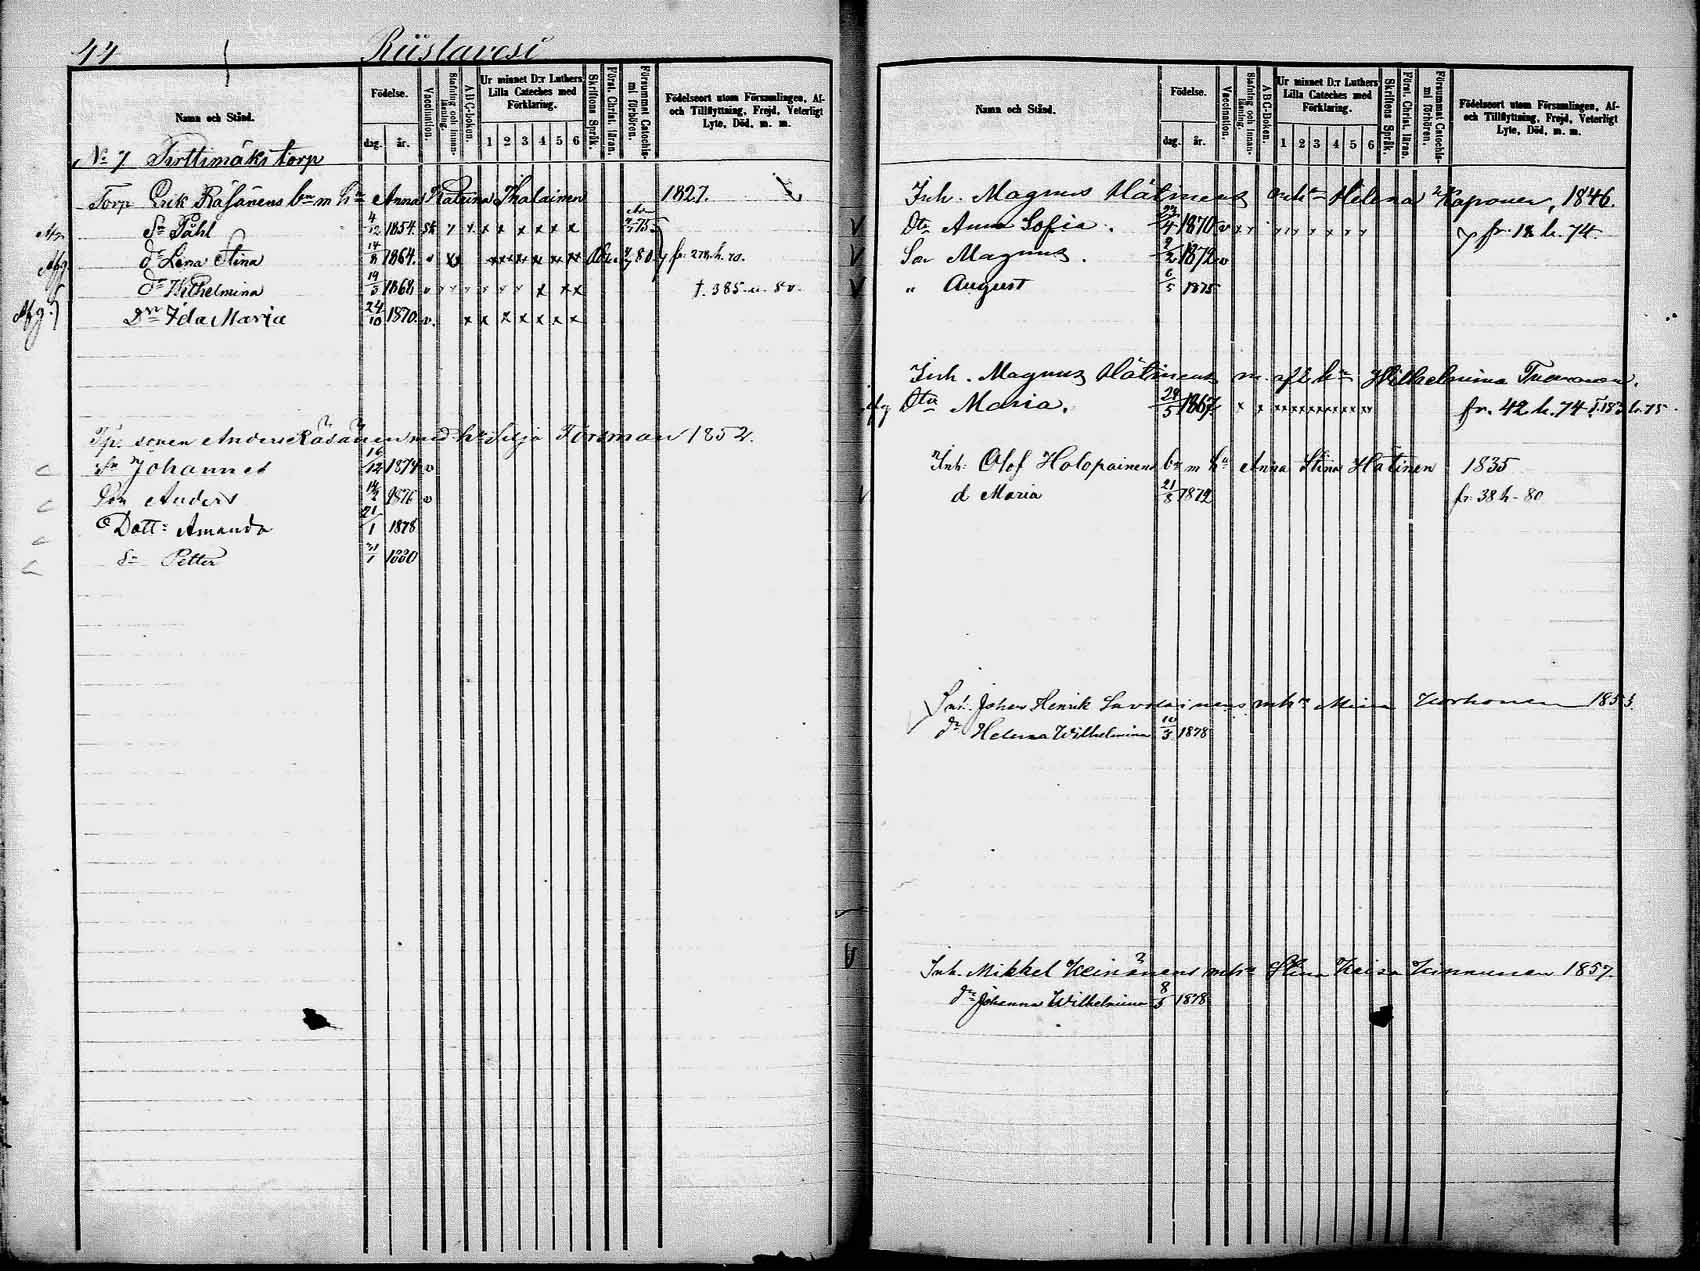 44 Riistavesi
Namn och Stånd.
Födelse.
dag. år.
Vaccination.
Stafning och innanläsning.
ABC-boken.
Ur minnet D:r Luthers Lilla Cateches med Förklaring.
1 2 3 4 5 6
Skriftens Språk.
Först. Christ. läran.
Försummat Catechismi förhören.
Födelseort utom Församlingen, Af- och Tillflyttning, Frejd, Veterligt Lyte, Död, m. m.
No 7 Pirttimäki torp
Torp Erik Räsänens bn m hn Anna Katrina Thalainen 1827.
Sn Påhl 4/12 1854.
Afg dr Lena Stina 14/8 1864. v 80 fr. 278 h. 70.
dr Wilhelmina 19/3 1868 v †. 385. u. 80.
Afg. Dr Ida Maria 24/10 1870. v.
Tp. sonen Anders Räsänen med h. Silja Forsman 1852.
Sn Johannes 16/12 1874 v
Son Anders 1876 v
Dott: Amanda 21/1 1878
Sn Petter 1880
Namn och Stånd.
Födelse.
dag. år.
Vaccination.
Stafning och innanläsning.
ABC-boken.
Ur minnet D:r Luthers Lilla Cateches med Förklaring.
1 2 3 4 5 6
Skriftens Språk.
Först. Christ. läran.
Försummat Catechismi förhören.
Födelseort utom Församlingen, Af- och Tillflyttning, Frejd, Veterligt Lyte, Död, m. m.
Inh. Magnus Hätinens Helena Kaponen, 1846.
Dtr Anna Sofia. 1870 v fr. 18 h. 74.
Son Magnus. 2/2 1872 v
" August 6/5 1875
Inh. Magnus Hätinens m. afl hn Wilhelmina Tuovonen.
Dtr Maria. 28/5 1867 fr. 42 h. 74
Inh: Olof Holopainens bn m hn Anna Stina Hätinen 1835
d Maria 21/8 1872 fr. 38 h - 80
Inh. Johan Henrik Savolainens mhn Mina Korhonen 1853.
dr Helena Wilhelmina 10/3 1878
Inh. Mikkel Keinänens mhn Stina Kaisa Kinnunen 1857.
dr Johanna Wilhelmina 8/5 1878